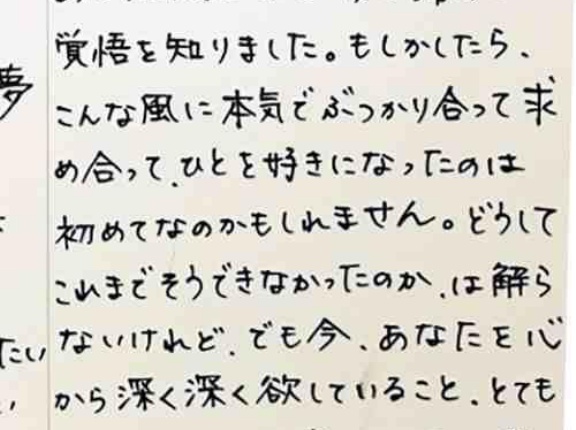 覚悟を知りました。もしかしたら、
こんな風に本気でぶつかり合って求
め合って、ひとを好きになったのは
初めてなのかもしれません。どうして
これまでそうできなかったのか、は解ら
ないけれど、でも今、あなたを心
から深く深く欲していること、とても
夢
たい